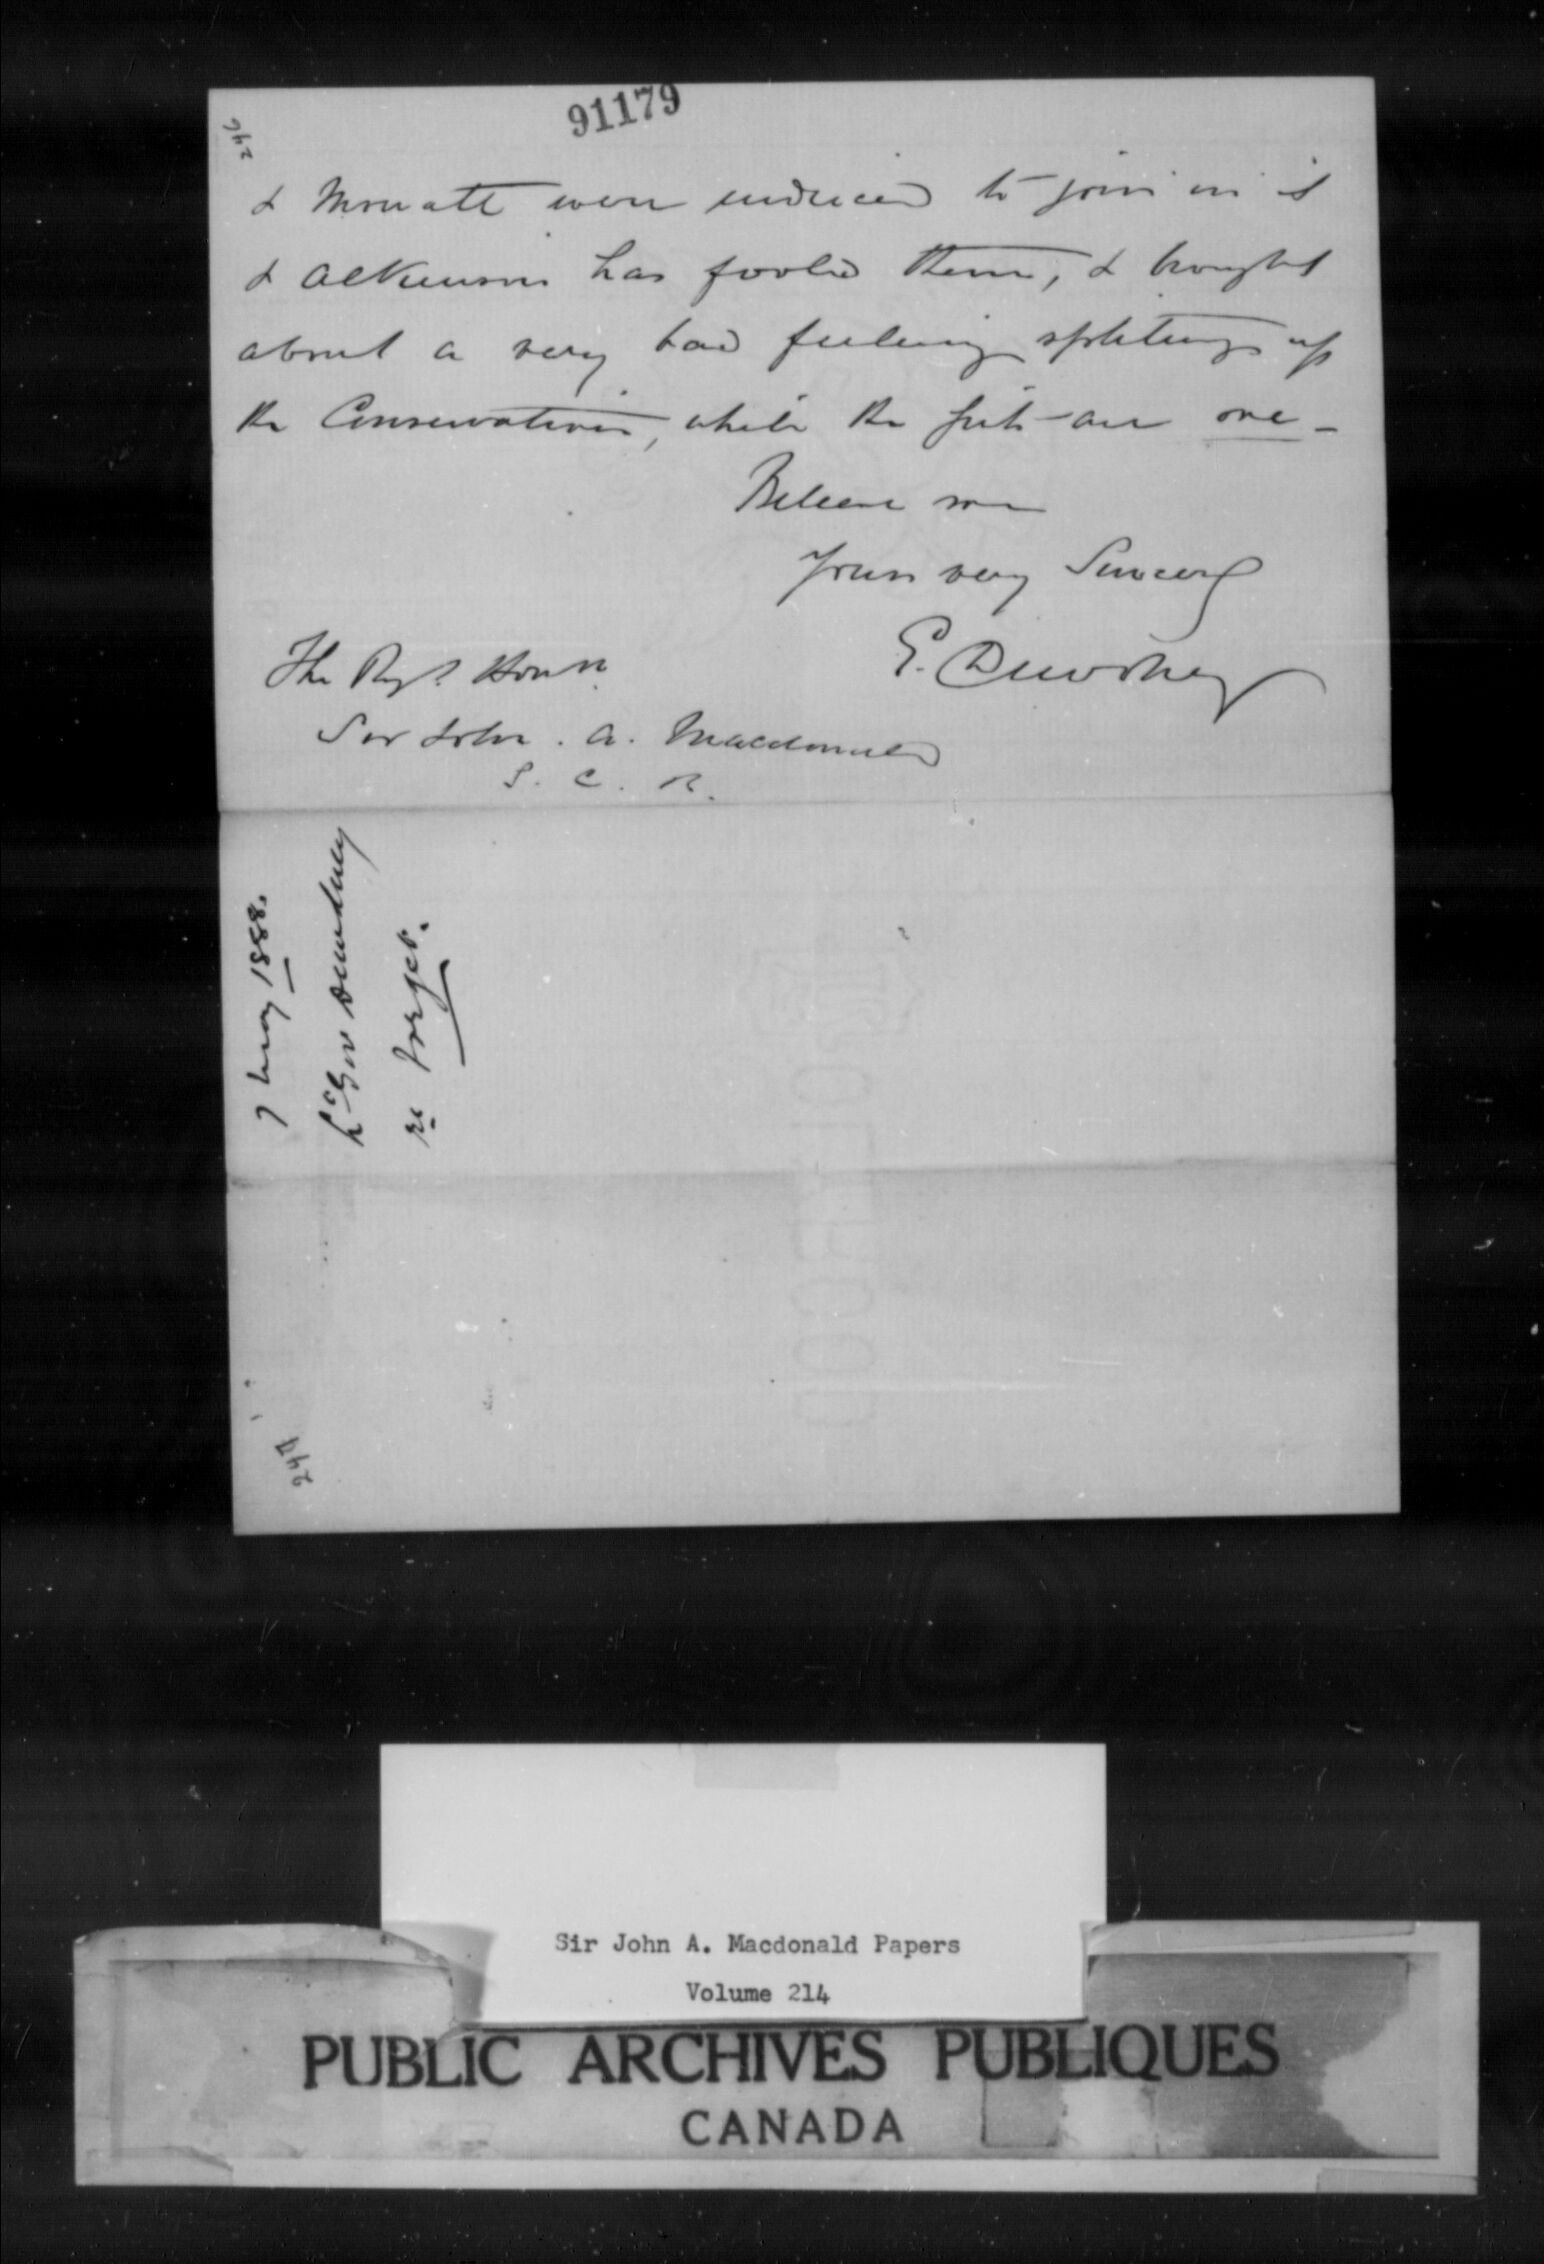 91179
246
& Mowatt were induced to join in it
& Atkinson has fooled them, & brought
about a very bad feeling splitting up
the Conservatives, while the Grits are one –
Believe me
Yours very Sincerely
E. Dewdney
The Rgt. Honble
Sir John. A. Macdonald
G. C. B.
7 May 1888.
Lt Gov Dewdney
re Forget.
247
Sir John A. Macdonald Papers
Volume 214
PUBLIC ARCHIVES PUBLIQUES
CANADA